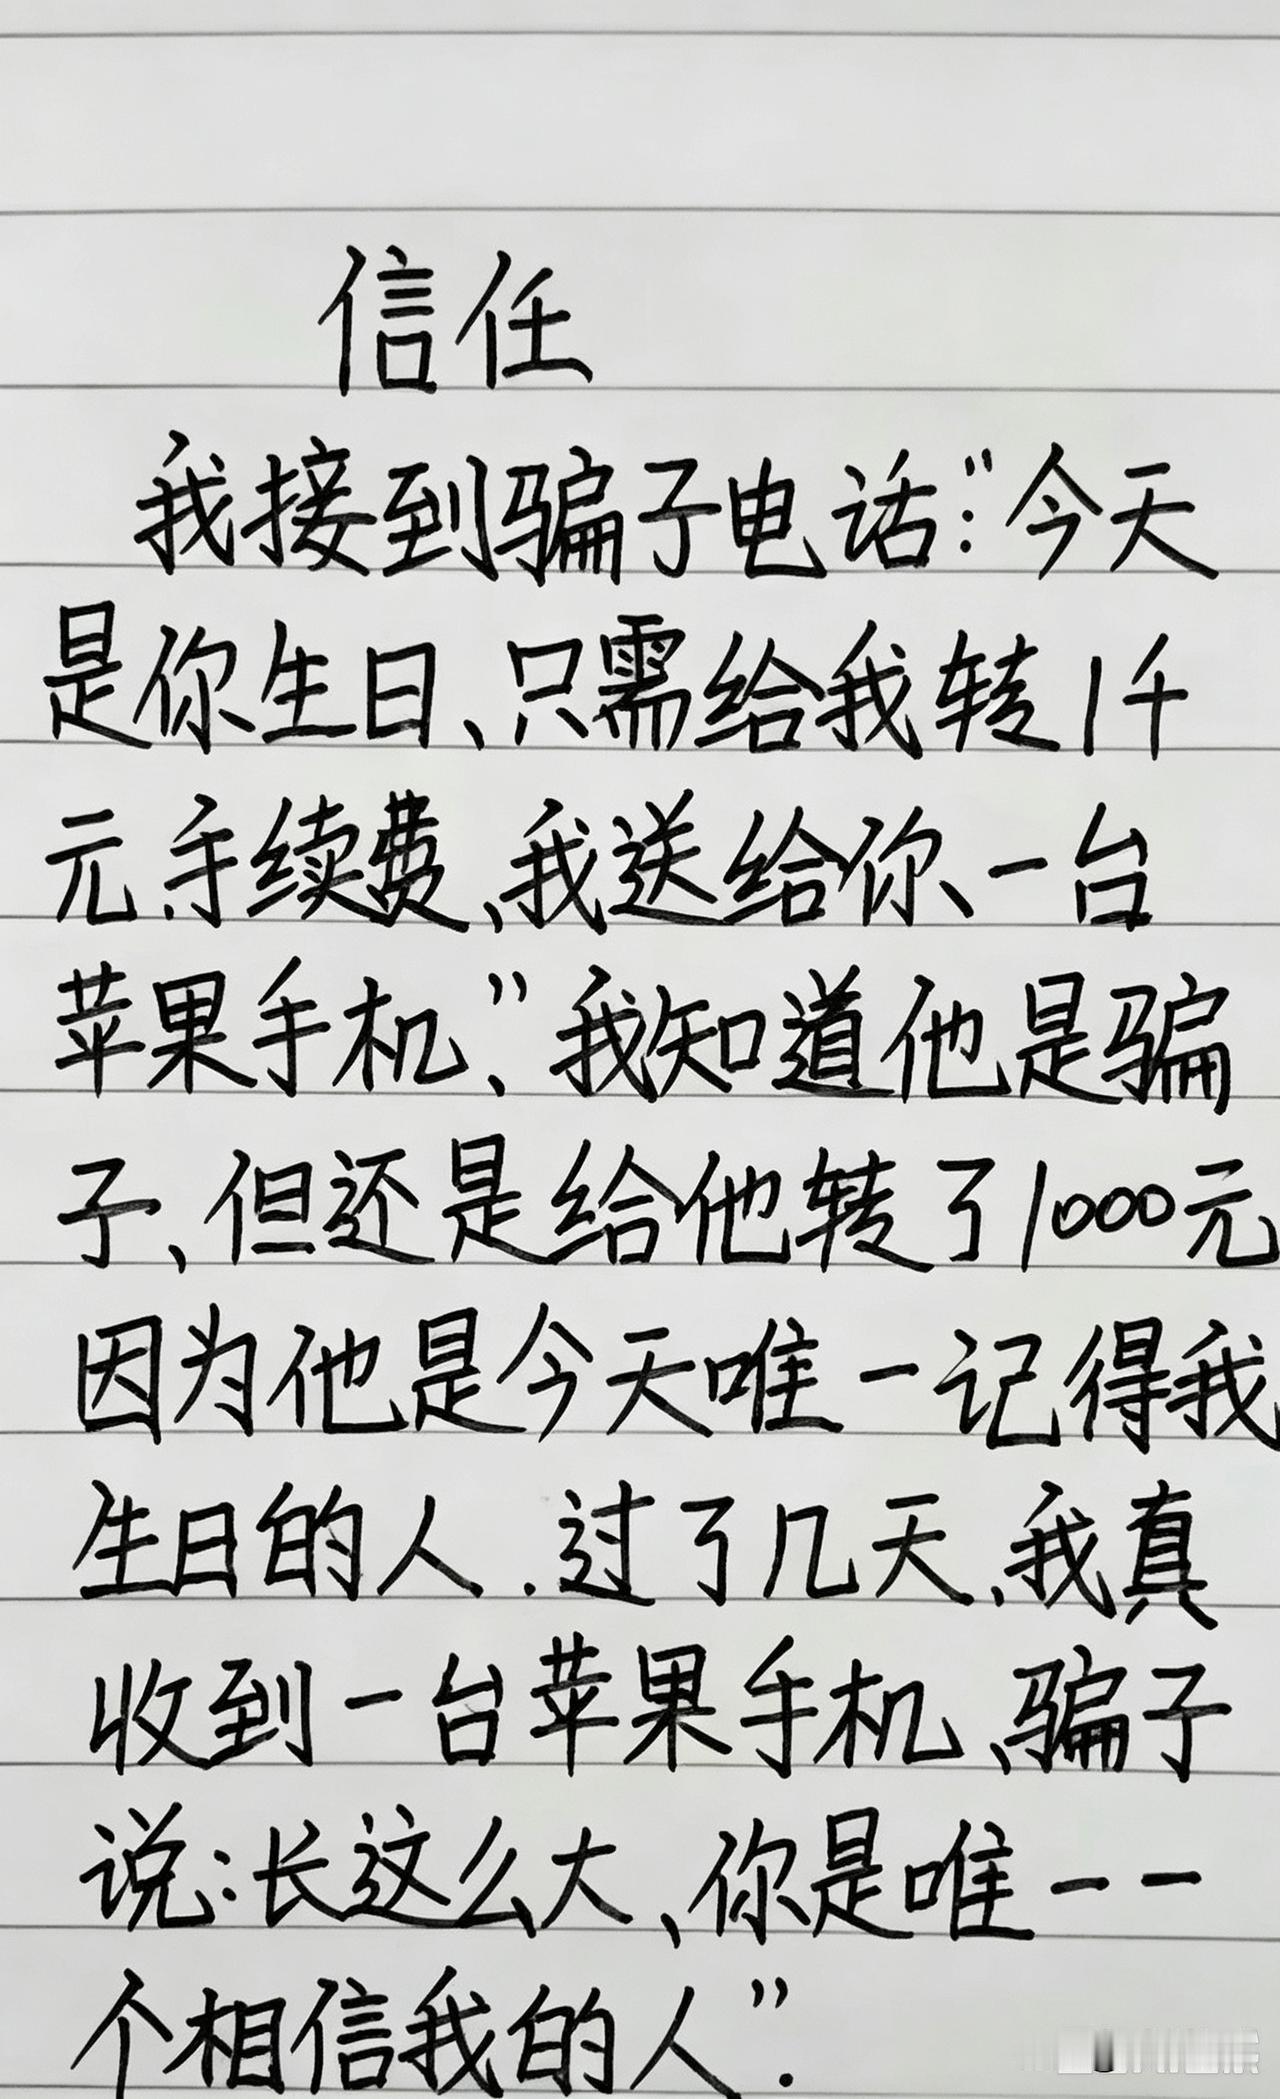 信任
我接到骗子电话:“今天
是你生日、只需给我转1千
元.手续费、我送给你、一台
苹果手机、”我知道他是骗
子、但还是给他转了1000元
因为他是今天唯一记得我
生日的人.过了几天、我真
收到一台苹果手机、骗子
说:长这么大、你是唯一一
个相信我的人”.